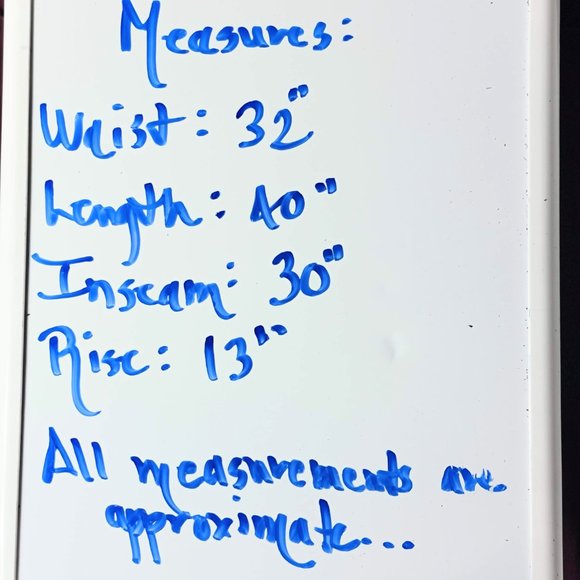 Measures:
Waist: 32"
Length: 40"
Inseam: 30"
Rise: 13"
All measurements are
approximate...